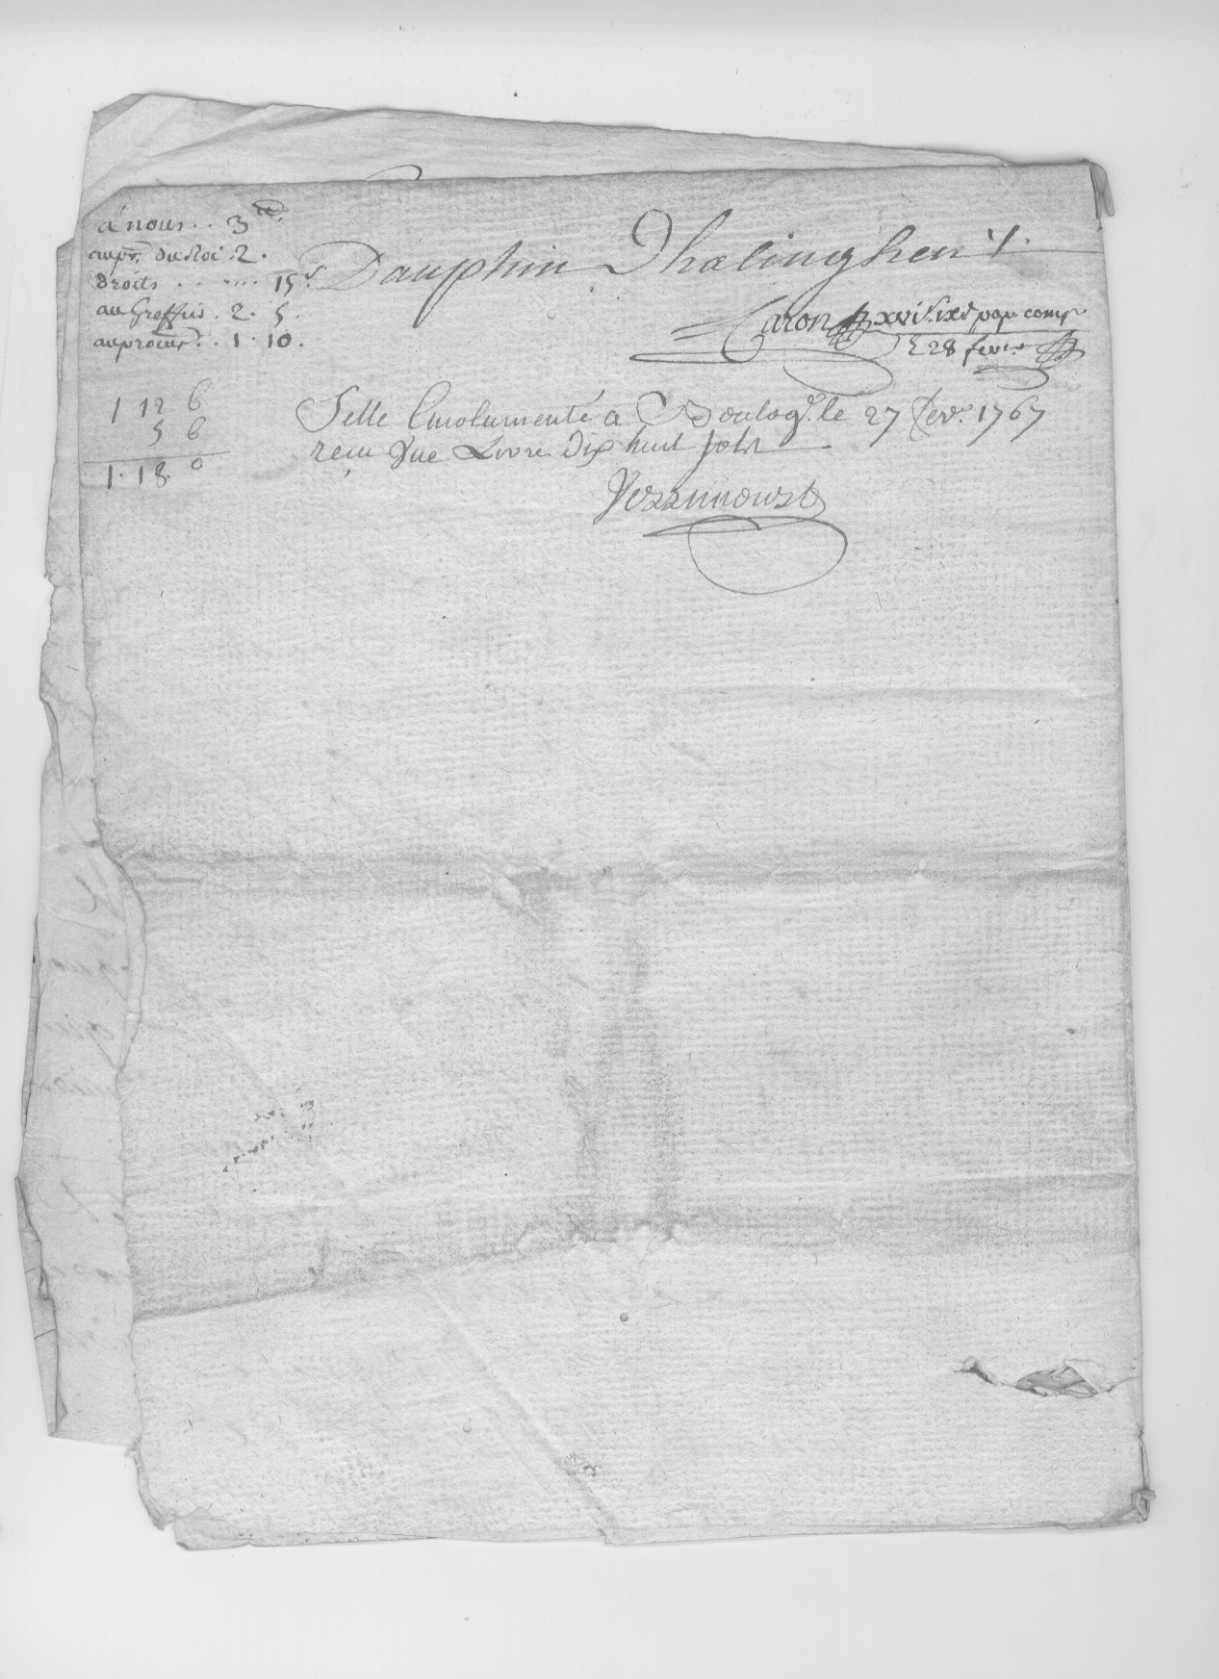 à nous .. 3lt.
au pr. du Roi . 2 .
Droits . . .... 15s.
au Greffier . 2 . 5 .
au procur. . . 1 . 10 .
Dauphin Dhalinghen
Caron
28 fevr.
1 12 6
5 6
1 . 18 . 0
Sellé Emolumenté a Boulog. le 27 fevr. 1767
reçu Une Livre Dix huit sols